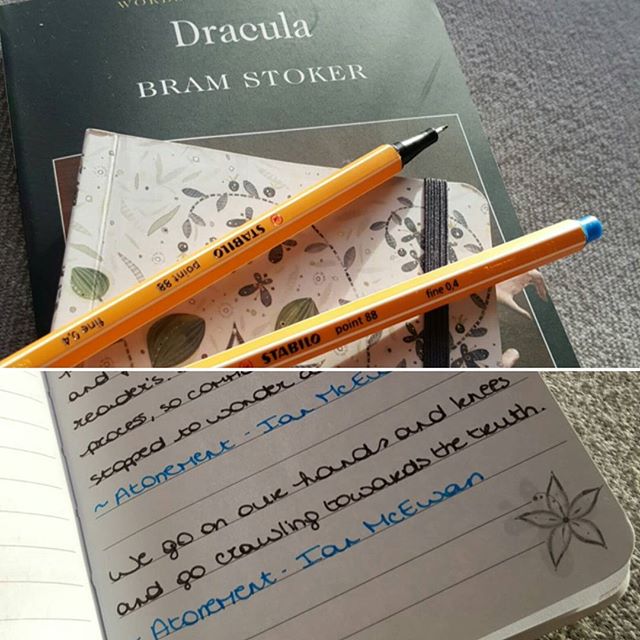 Dracula
BRAM STOKER
STABILO point 88 fine 0,4
STABILO point 88 fine 0,4
and
reader's
process, so
stopped to wonder
~ Atonement - Ian McEw
We go on our hands and knees
and go crawling towards the truth.
~ Atonement - Ian McEwan